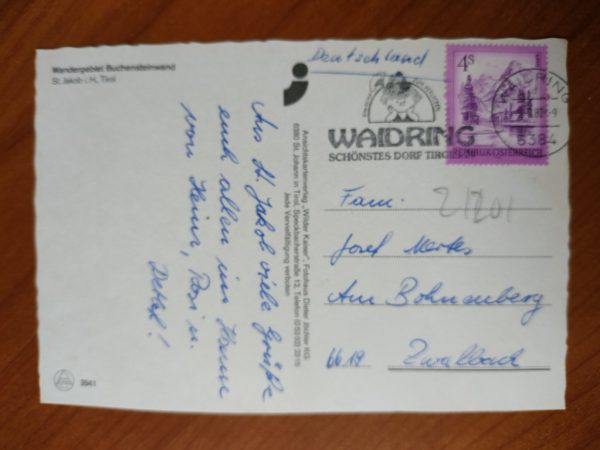 Wandergebiet Buchensteinwand
St. Jakob i. H., Tirol
Aus St. Jakob viele Grüße
euch allen im Hause
von Heinz, Rosi u.
Detlef!
3941
Ansichtskartenverlag „Wilder Kaiser“, Fotohaus Dieter Jöchler KG.
6380 St. Johann in Tirol, Speckbacherstraße 13, Telefon
Jede Vervielfältigung verboten
Deutschland
4S
WAIDRING
SCHÖNSTES DORF TIROLS
REPUBLIK ÖSTERREICH
WAIDRING
6384
Fam.
Josef Mertes
Am Bohnenberg
6619 Zwalbach